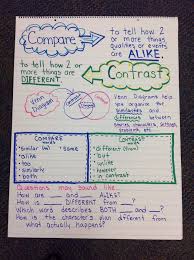 Compare
to tell how 2
or more things
qualities or events
are ALIKE.
to tell how 2
or more things are
DIFFERENT.
Contrast
Venn
Diagram
Venn Diagrams help
you organize the
similarities and
differences between
stories, characters, settings,
problems, etc.
COMPARE
words
• similar (to)
• alike
• too
• similarly
• both
• same
CONTRAST
words
• different (from)
• but
• unlike
• however
• in contrast
Questions may sound like...
How are ___ and ___ ALIKE?
How is ___ DIFFERENT from ___?
Which word describes BOTH ___ and ___?
How is the character's plan different from
what actually happens?